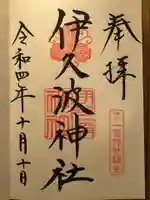 奉拝
伊久波神社
令和四年十月十日